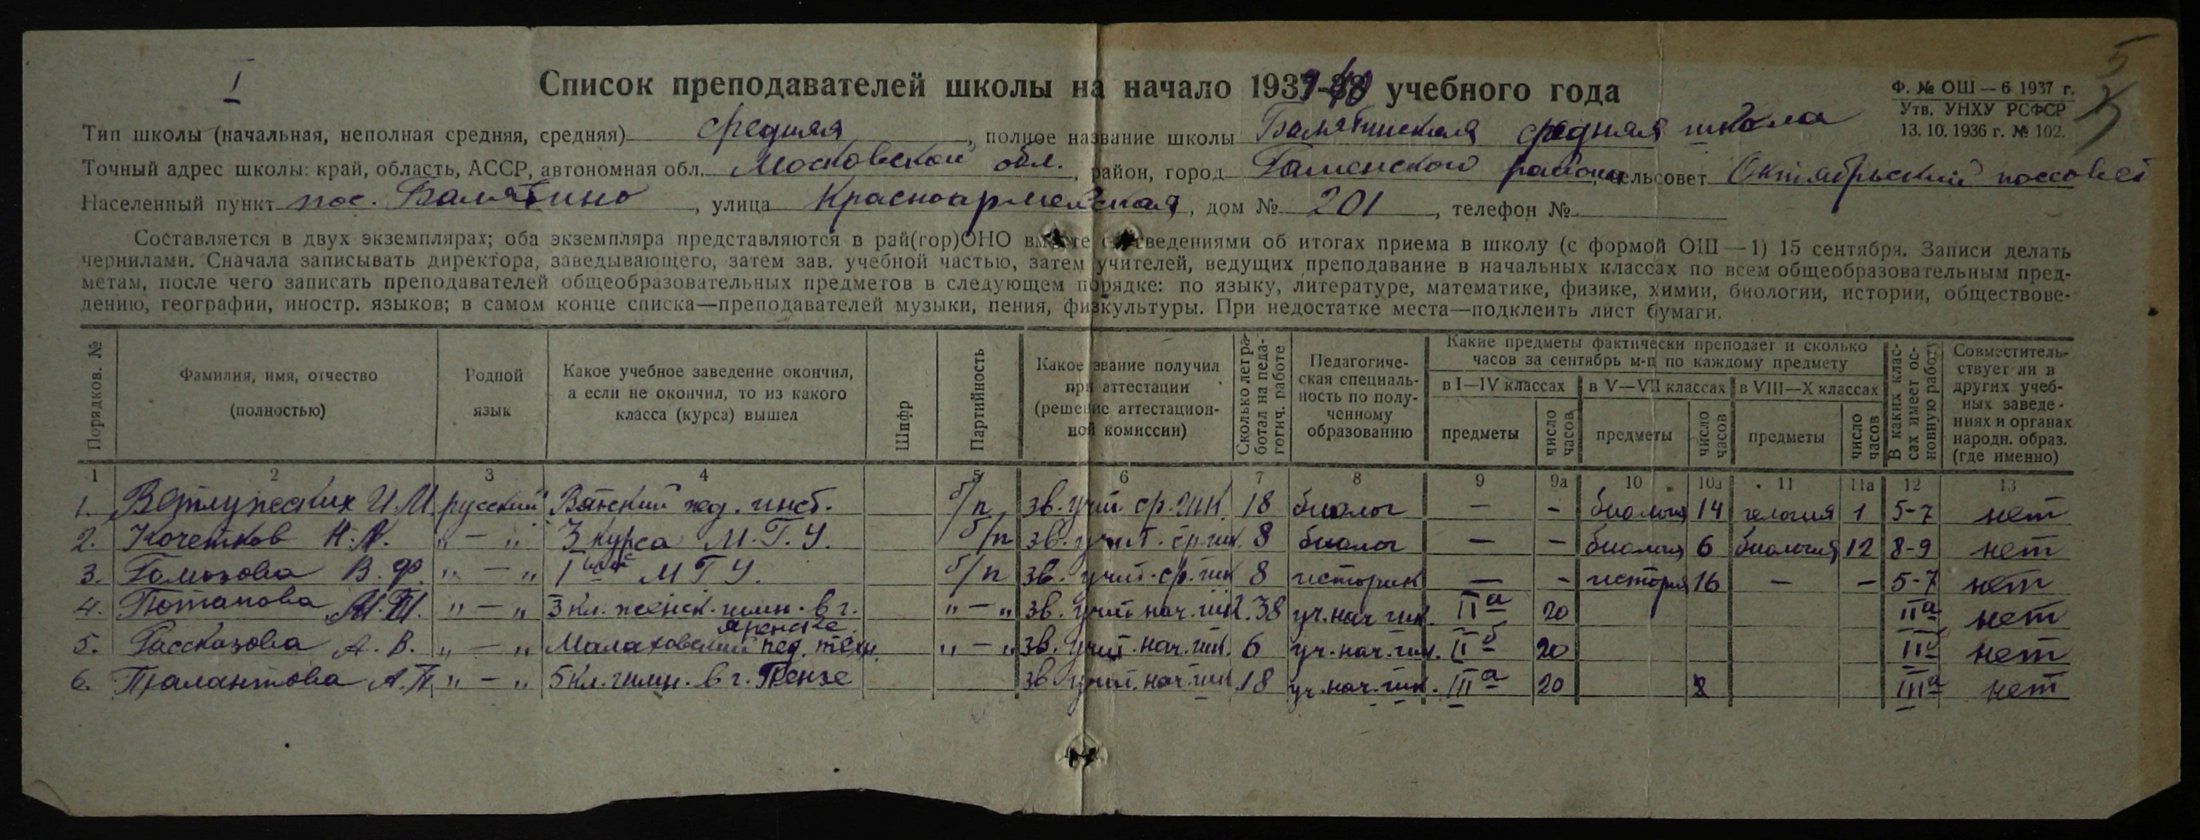 I
5
Список преподавателей школы на начало 1939-40 учебного года
Ф. № ОШ — 6 1937 г.
Утв. УНХУ РСФСР
13. 10. 1936 г. № 102.
Тип школы (начальная, неполная средняя, средняя) средняя, полное название школы Бамятинская средняя школа
Точный адрес школы: край, область, АССР, автономная обл. Московской обл., район, город Раменского района, сельсовет Октябрьский поссовет
Населенный пункт пос. Бамятино, улица Красноармейская, дом № 201, телефон №
Составляется в двух экземплярах; оба экземпляра представляются в рай(гор)ОНО вместе с сведениями об итогах приема в школу (с формой ОШ — 1) 15 сентября. Записи делать
чернилами. Сначала записывать директора, заведывающего, затем зав. учебной частью, затем учителей, ведущих преподавание в начальных классах по всем общеобразовательным пред-
метам, после чего записать преподавателей общеобразовательных предметов в следующем порядке: по языку, литературе, математике, физике, химии, биологии, истории, обществове-
дению, географии, иностр. языков; в самом конце списка—преподавателей музыки, пения, физкультуры. При недостатке места—подклеить лист бумаги.
Порядков. №
Фамилия, имя, отчество
(полностью)
Родной
язык
Какое учебное заведение окончил,
а если не окончил, то из какого
класса (курса) вышел
Шифр
Партийность
Какое звание получил
при аттестации
(решение аттестацион-
ной комиссии)
Сколько лет ра-
ботал на педа-
гогич. работе
Педагогиче-
ская специаль-
ность по полу-
ченному
образованию
Какие предметы фактически преподает и сколько
часов за сентябрь м-ц по каждому предмету
в I—IV классах в V—VII классах в VIII—X классах
предметы число часов предметы число часов предметы число часов
В каких клас-
сах имеет ос-
новную работу
Совместитель-
ствует ли в
других учеб-
ных заведе-
ниях и органах
народн. образ.
(где именно)
1 2 3 4 5 6 7 8 9 9а 10 10а 11 11а 12 13
1. Ветлужских И.М. русский Вятский пед. инст. б/п зв. учит. ср. шк. 18 биолог — - биология 14 1 5-7 нет
2. Кочетков Н.А. „ — „ 3 курса М.Г.У. б/п зв. учит. ср. шк. 8 биолог — - биология 6 биология 12 8-9 нет
3. Гомозова В.Ф. „ — „ I МГУ. б/п зв. учит. ср. шк. 8 историк — - история 16 — - 5-7 нет
4. Потапова М.П. „ — „ 3 кл. женск. гимн. в г. Яренске „ — „ зв. учит. нач. шк. 38 уч. нач. шк. IIа 20 IIа нет
5. Рассказова А.В. „ — „ Малаховский пед. техн. „ — „ зв. учит. нач. шк. 6 уч. нач. шк. IIб 20 IIб нет
6. Талантова А.П. „ — „ 5 кл. гимн. в г. Пензе зв. учит. нач. шк. 18 уч. нач. шк. IIIа 20 IIIа нет